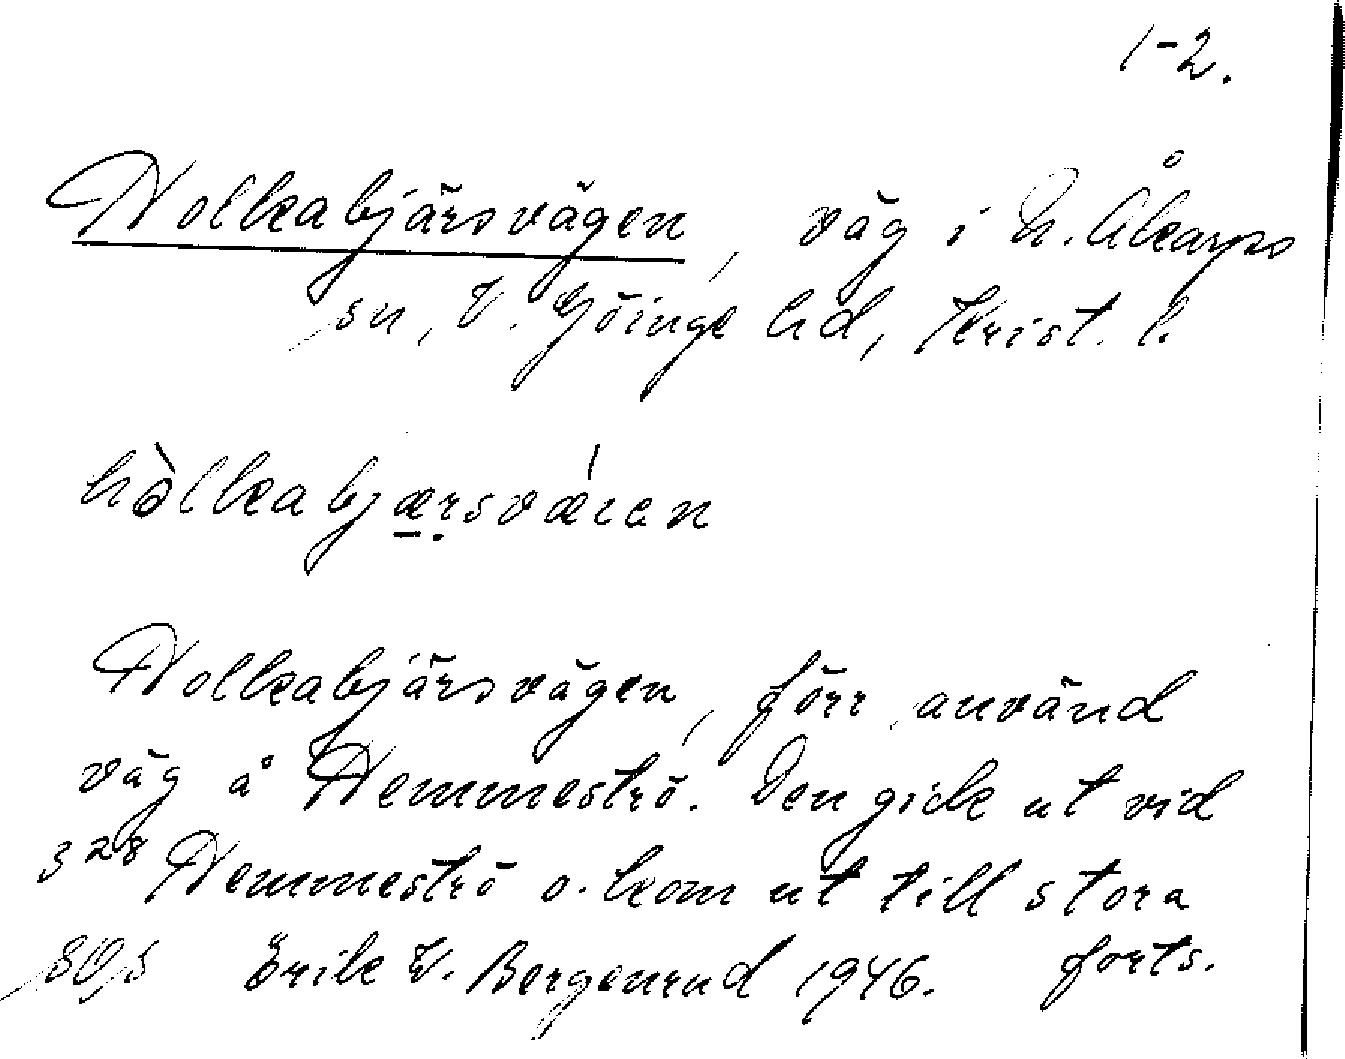 1-2.
Holkabjärsvägen, väg i N. Åkarps
sn, V. Göinge hd, Krist. l.
hòlkabjæṛsváien
Holkabjärsvägen, förr använd
väg å Hemmeströ. Den gick ut vid
328 Hemmeströ o. kom ut till stora
Erik W. Bergenrud 1946. forts.